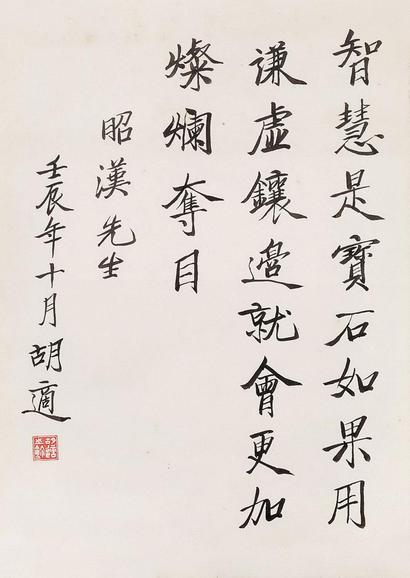 智慧是寶石如果用
謙虛鑲邊就會更加
燦爛奪目
昭漢先生
壬辰年十月胡適